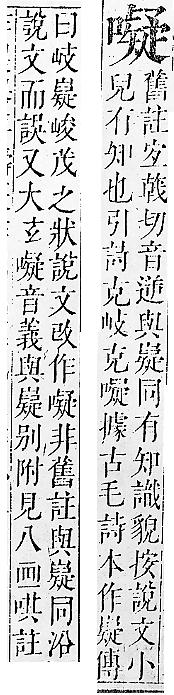 㘈
舊註宐戟切音逆與嶷同有知識貌按說文小
兒有知也引詩克岐克㘈據古毛詩本作嶷傳
曰岐嶷峻茂之狀說文改作㘈非舊註與嶷同沿
說文而誤又大玄㘈音義與嶷別附見八画哄註